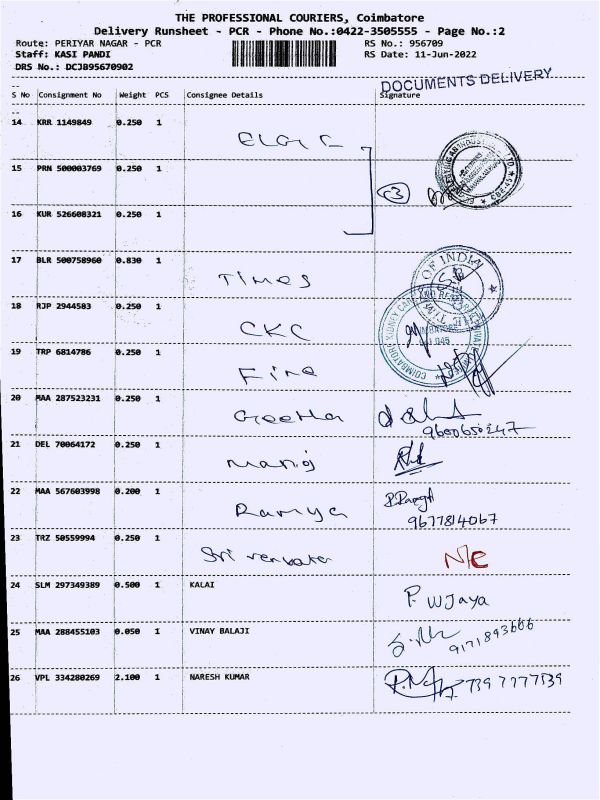 THE PROFESSIONAL COURIERS, Coimbatore
Delivery Runsheet - PCR - Phone No.:0422-3505555 - Page No.:2
Route: PERIYAR NAGAR - PCR RS No.: 956709
Staff: KASI PANDI RS Date: 11-Jun-2022
DRS No.: DCJB95670902
DOCUMENTS DELIVERY
S No Consignment No Weight PCS Consignee Details Signature
14 KRR 1149849 0.250 1
15 PRN 500003769 0.250 1
16 KUR 526608321 0.250 1
17 BLR 500758960 0.830 1 Times
OF INDIA
18 RJP 2944583 0.250 1 CKC
19 TRP 6814786 0.250 1 Fine
20 MAA 287523231 0.250 1 Geetha
9600650247
21 DEL 70064172 0.250 1 Manoj
22 MAA 567603998 0.200 1 Ramya
9677814067
23 TRZ 50559994 0.250 1 Sri N/C
24 SLM 297349389 0.500 1 KALAI P. WJaya
25 MAA 288455103 0.050 1 VINAY BALAJI 9171893666
26 VPL 334280269 2.100 1 NARESH KUMAR 7397777539